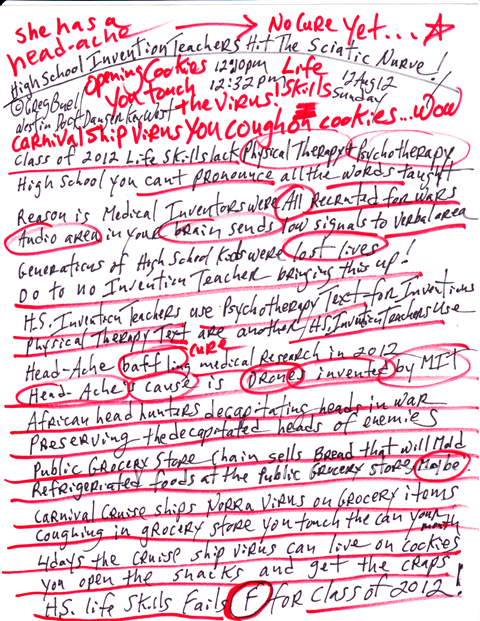 she has a
head-ache → No Cure Yet...☆
High School Invention Teachers Hit The Sciatic Nurve!
Opening Cookies 12:20pm Life
© Greg Buell you touch 12:32pm Skills 12 Aug 12
Westin Port Danser Key West the virus! Sunday
Carnival Ship Virus you cough on cookies...Wow
class of 2012 Life Skills lack Physical Therapy + Psychotherapy
High School you cant pronounce all the words taught
Reason is Medical Inventors were All Recruted for wars
Audio area in your brain sends low signals to verbal area
Generations of High School Kids were lost lives
Do to no Invention Teacher bringing this up!
H.S. Invention Teachers use Psychotherapy Text for Inventions
Physical Therapy Text are another H.S. Invention Teachers Use
Head-Ache baffling cure medical Research in 2012
Head-Ache's cause is Drones invented by MIT
African head hunters decapitating heads in war
Preserving the decapitated heads of enemies
Public Grocery Store chain sells Bread that will Mold
Refrigeriated foods at the Public Grocery Store Maybe.
Carnival Cruise ships Norra Virus on Grocery items
coughing in grocery store you touch the can your mouth
4 days the cruise ship virus can live on cookies
you open the snacks and get the craps
H.S. life Skills Fails F for Class of 2012!